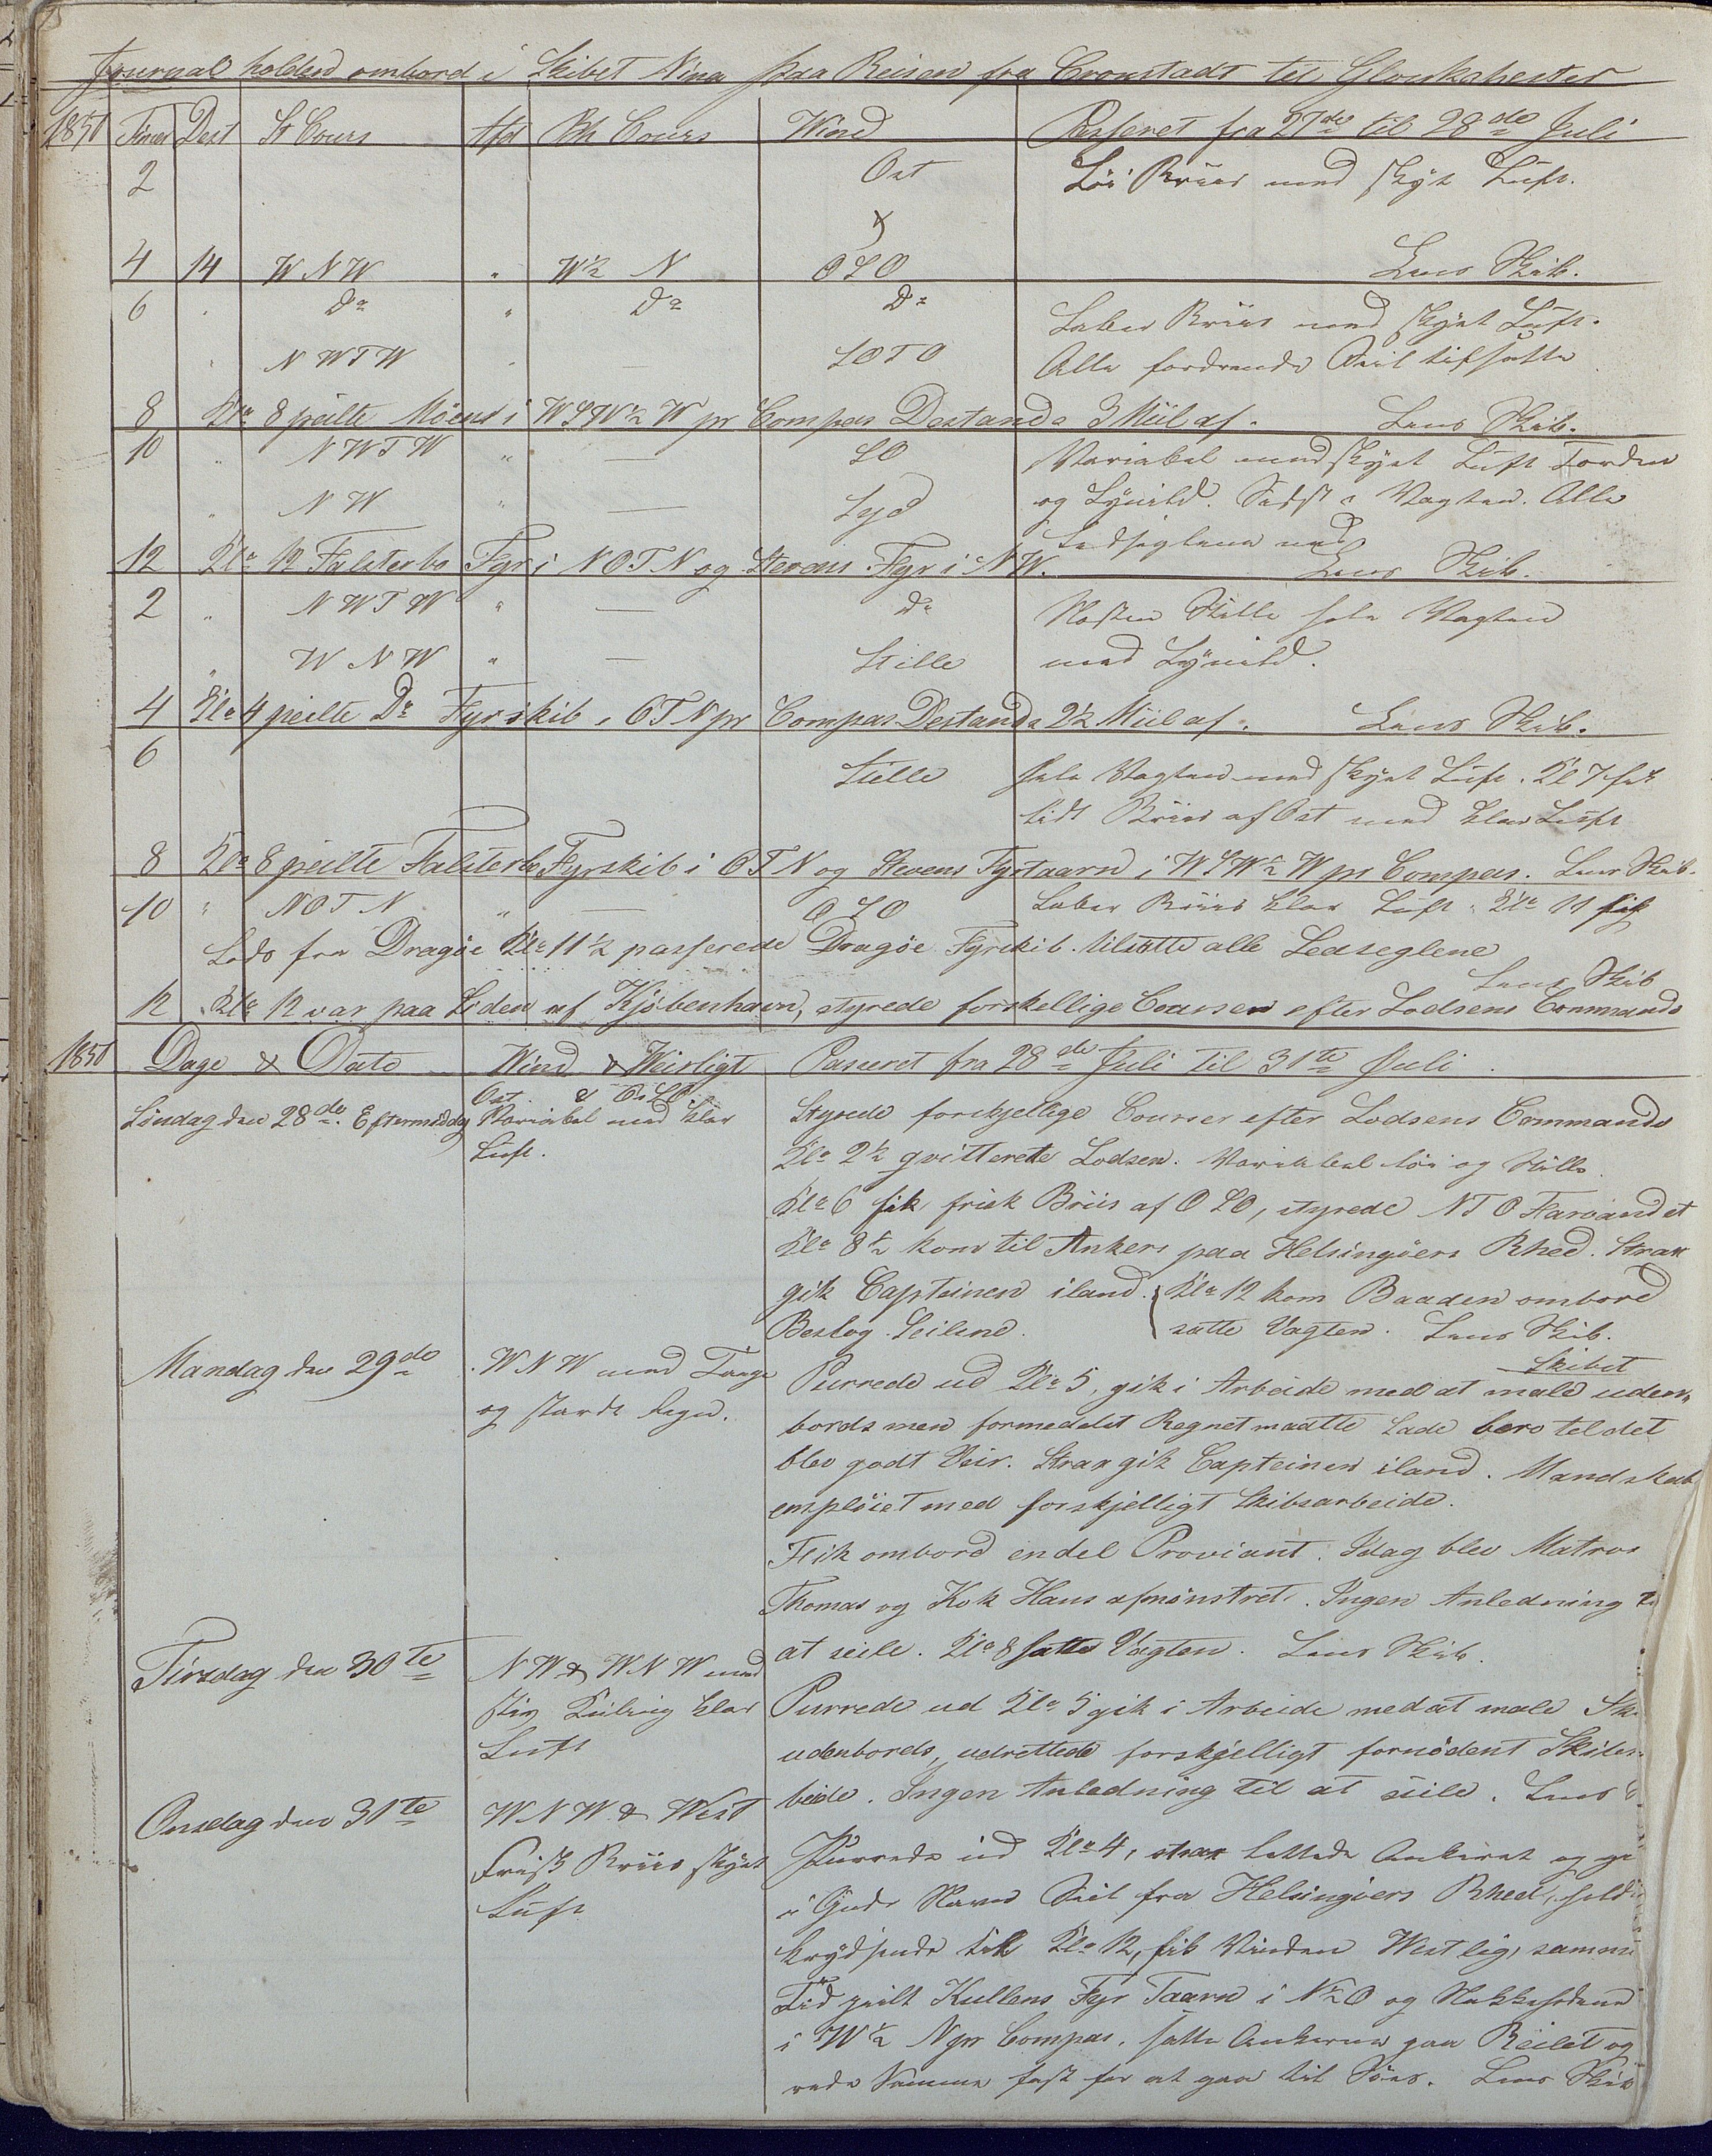 Journal holden ombord i Skibet Nina paa Reisen fra Cronstadt til Gloukshester
1850 Timer Dist St Cours Afd Bh Cours Wind Passeret fra 27de til 28de Juli
2 Ost Löi Briis med skyet Luft.
4 14 W N W " W ½ N O S O Lens Skib.
6 " Do " Do Do Laber Briis med skyet Luft.
" N W T W " — S O T O Alle fordrende Seil tilsatte
8 Klo 8 peilte Möens i W S W ½ W pr Compas Destande 3 Miil af. Lens Skib.
10 " N W T W " — S O Variabel med skyet Luft Torden
" N W " — Syd og Lynild. Sidst i Vagten. Alle
Ledseglene ned
12 Klo 12 Falsterbo Fyr i N O T N og Stevens Fyr i N W. Lens Skib.
2 " N W T W " — Do Næsten Stille hele Vagten
" W N W " — Stille med Lynild.
4 Klo 4 peilte Do Fyrskib i O T N pr Compas Destande 2½ Miil af. Lens Skib.
6 Stille hele Vagten med skyet Luft. Kl 7 fik
lidt Briis af Ost med klar Luft
8 Klo 8 peilte Falsterbo Fyrskib i O T N og Stevens Fyrtaarn i W S W ½ W pr Compas. Lens Skib.
10 " N O T N " — O S O Laber Briis klar Luft. Klo 11 fik
Lods fra Dragöe Klo 11½ passerede Dragöe Fyrskib. tilsatte alle Ledseglene
Lens Skib
12 Klo 12 var paa Siden af Kjöbenhavn, styrede forskellige Courser efter Lodsens Commando
1850 Dage & Dato Wind & Weirligt Passeret fra 28de Juli til 31te Juli
Söndag den 28de. Eftermiddag Ost & O S O Styrede forskjellige Courser efter Lodsens Commando
Variabel med klar
Luft. Klo 2½ qvitterete Lodsen. Variabel löi og Stille.
Klo 6 fik frisk Briis af O S O, styrede N T O Farvandet
Klo 8½ kom til Ankers paa Helsingöers Rhed. Strax
gik Capteinen iland. Klo 12 kom Baaden ombord
Beslog Seilene. satte Vagten. Lens Skib.
Mandag den 29de W N W med Taage Purrede ud Klo 5, gik i Arbeide med at male Skibet uden-
og stærk Regn. bords men formedelst Regnet maatte lade bero tel det
blev godt Veir. Strax gik Capteinen iland. Mandskab
emplöiet med forskjelligt Skibsarbeide.
Fik ombord endel Proviant. Idag blev Matros
Thomas og Kok Hans afmönstret. Ingen Anledning
at seile. Klo 8 satte Vagten. Lens Skib.
Tirsdag den 30te N W & W N W med Purrede ud Klo 5 gik i Arbeide med at male
stiv Kuling klar udenbords, udrettede forskjelligt fornödent
Luft beide. Ingen Anledning til at seile. Lens
Onsdag den 31te W N W & West Purrede ud Klo 4, strax lettede Ankeret og
Frisk Briis skyet i Guds Navn Seil fra Helsingöers Rhed,
Luft krydsende til Klo 12, fik Vinden Westlig,
Tid peilt Kullens Fyr Taarn i N ½ O og Nakkehoved
i W ½ N pr Compas. satte Ankerne paa Reilet og
Samme fast for at gaa til Söes. Lens Skib